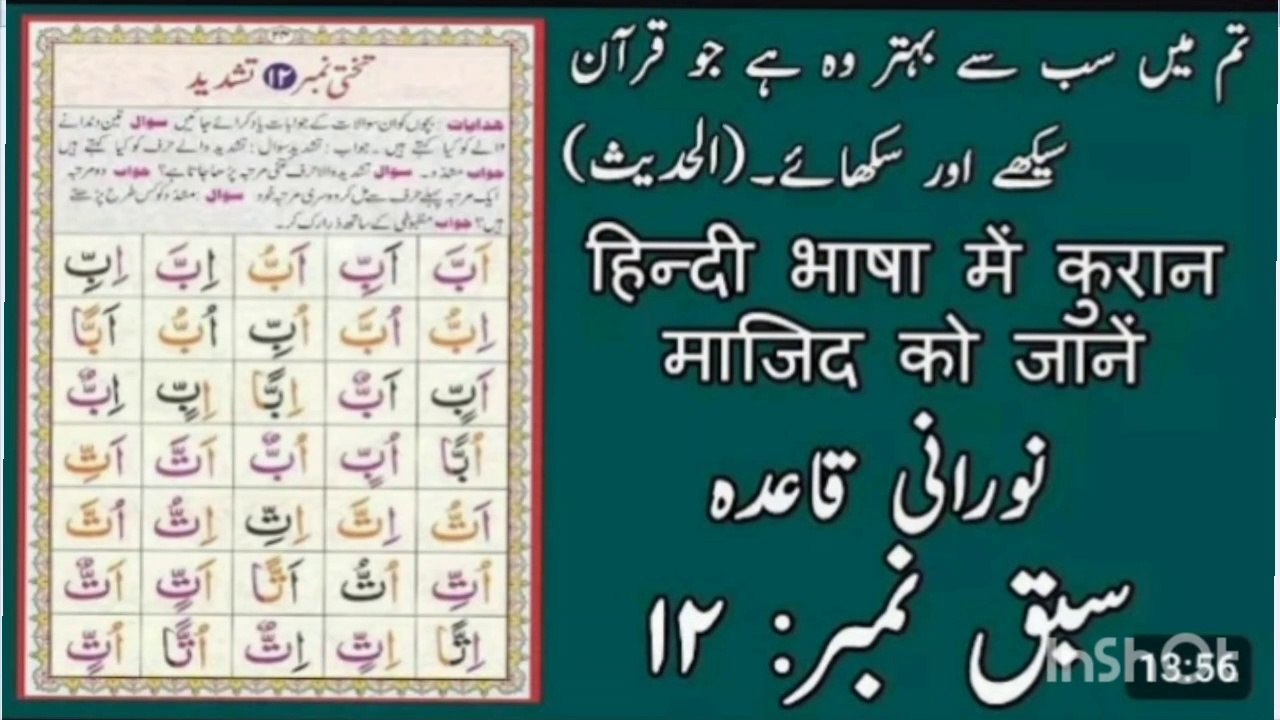 تختی نمبر ۱۲ تشدید
ھدایات : بچوں کو ان سوالات کے جوابات یاد کرائے جائیں سوال تین دندانے
والے کو کیا کہتے ہیں ۔ جواب : تشدید سوال : تشدید والے حرف کو کیا کہتے ہیں
جواب مشدد ۔ سوال تشدید والا حرف کتنی مرتبہ پڑھا جاتا ہے؟ جواب دو مرتبہ
ایک مرتبہ پہلے حرف سے مل کر دوسری مرتبہ خود سوال : مشدد کو کس طرح پڑھتے
ہیں؟ جواب مضبوطی کے ساتھ ذرا رک کر ۔
اَبَّ اَبِّ اَبُّ اِبَّ اِبِّ
اِبُّ اُبَّ اُبِّ اُبُّ اَبًّا
اَبٍّ اَبٌّ اِبًّا اِبٍّ اِبٌّ
اُبًّا اُبٍّ اُبٌّ اَتَّ اَتِّ
اَتُّ اِتَّ اِتِّ اِتُّ اُتَّ
اُتِّ اُتُّ اَتًّا اَتٍّ اَتٌّ
اِتًّا اِتٍّ اِتٌّ اُتًّا اُتٍّ
تم میں سب سے بہتر وہ ہے جو قرآن
سیکھے اور سکھائے۔ (الحدیث)
हिन्दी भाषा में कुरान
माजिद को जानें
نورانی قاعدہ
سبق نمبر: ۱۲
InShOt
13:56